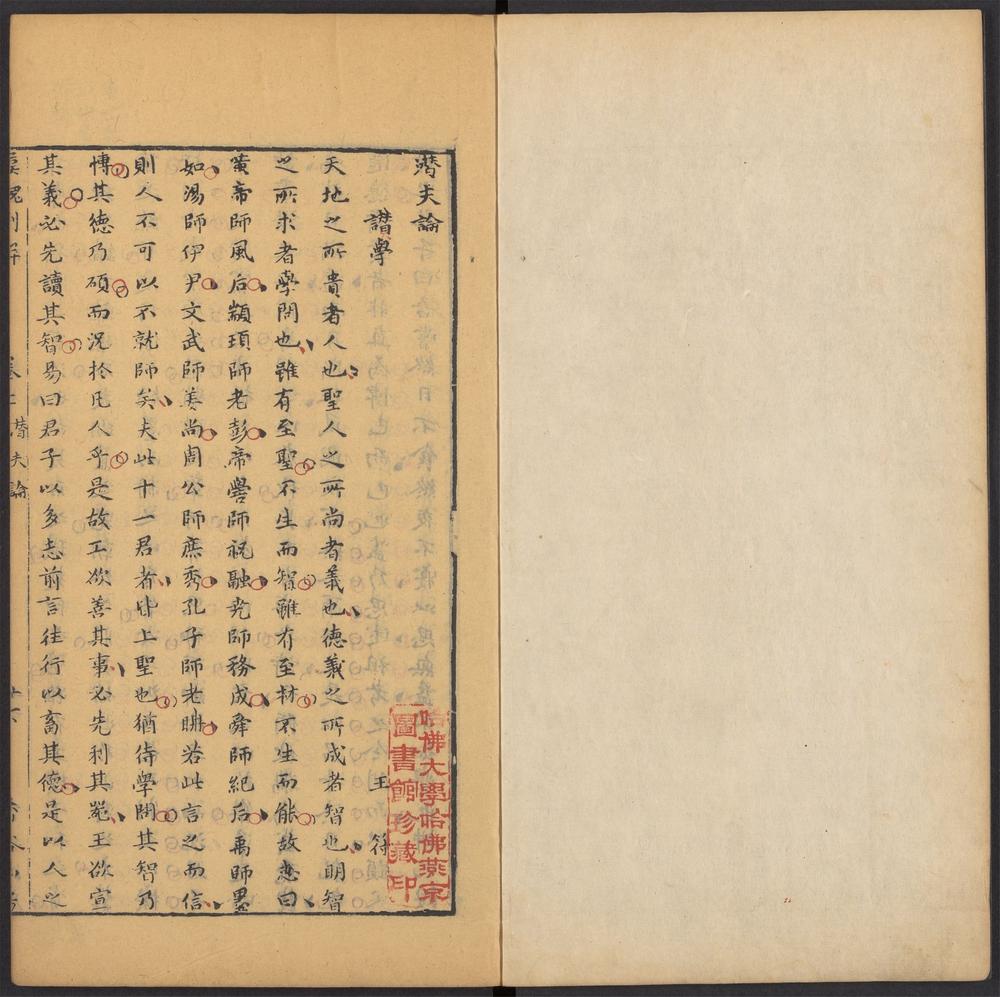 潛夫論
讃學 王符
天地之所貴者人也聖人之所尚者義也德義之所成者智也明智
之所求者學問也雖有至聖不生而智雖有至材不生而能故志曰
黃帝師風后顓頊師老彭帝嚳師祝融堯師務成舜師紀后禹師墨
如湯師伊尹文武師姜尚周公師庶秀孔子師老聃若此言之而信
則人不可以不就師矣夫此十一君者皆上聖也猶待學問其智乃
博其德乃碩而況於凡人乎是故工欲善其事必先利其器王欲宣
其義必先讀其智易曰君子以多志前言往行以畜其德是以人之
潛夫論
哈佛大學哈佛燕京
圖書館珍藏印